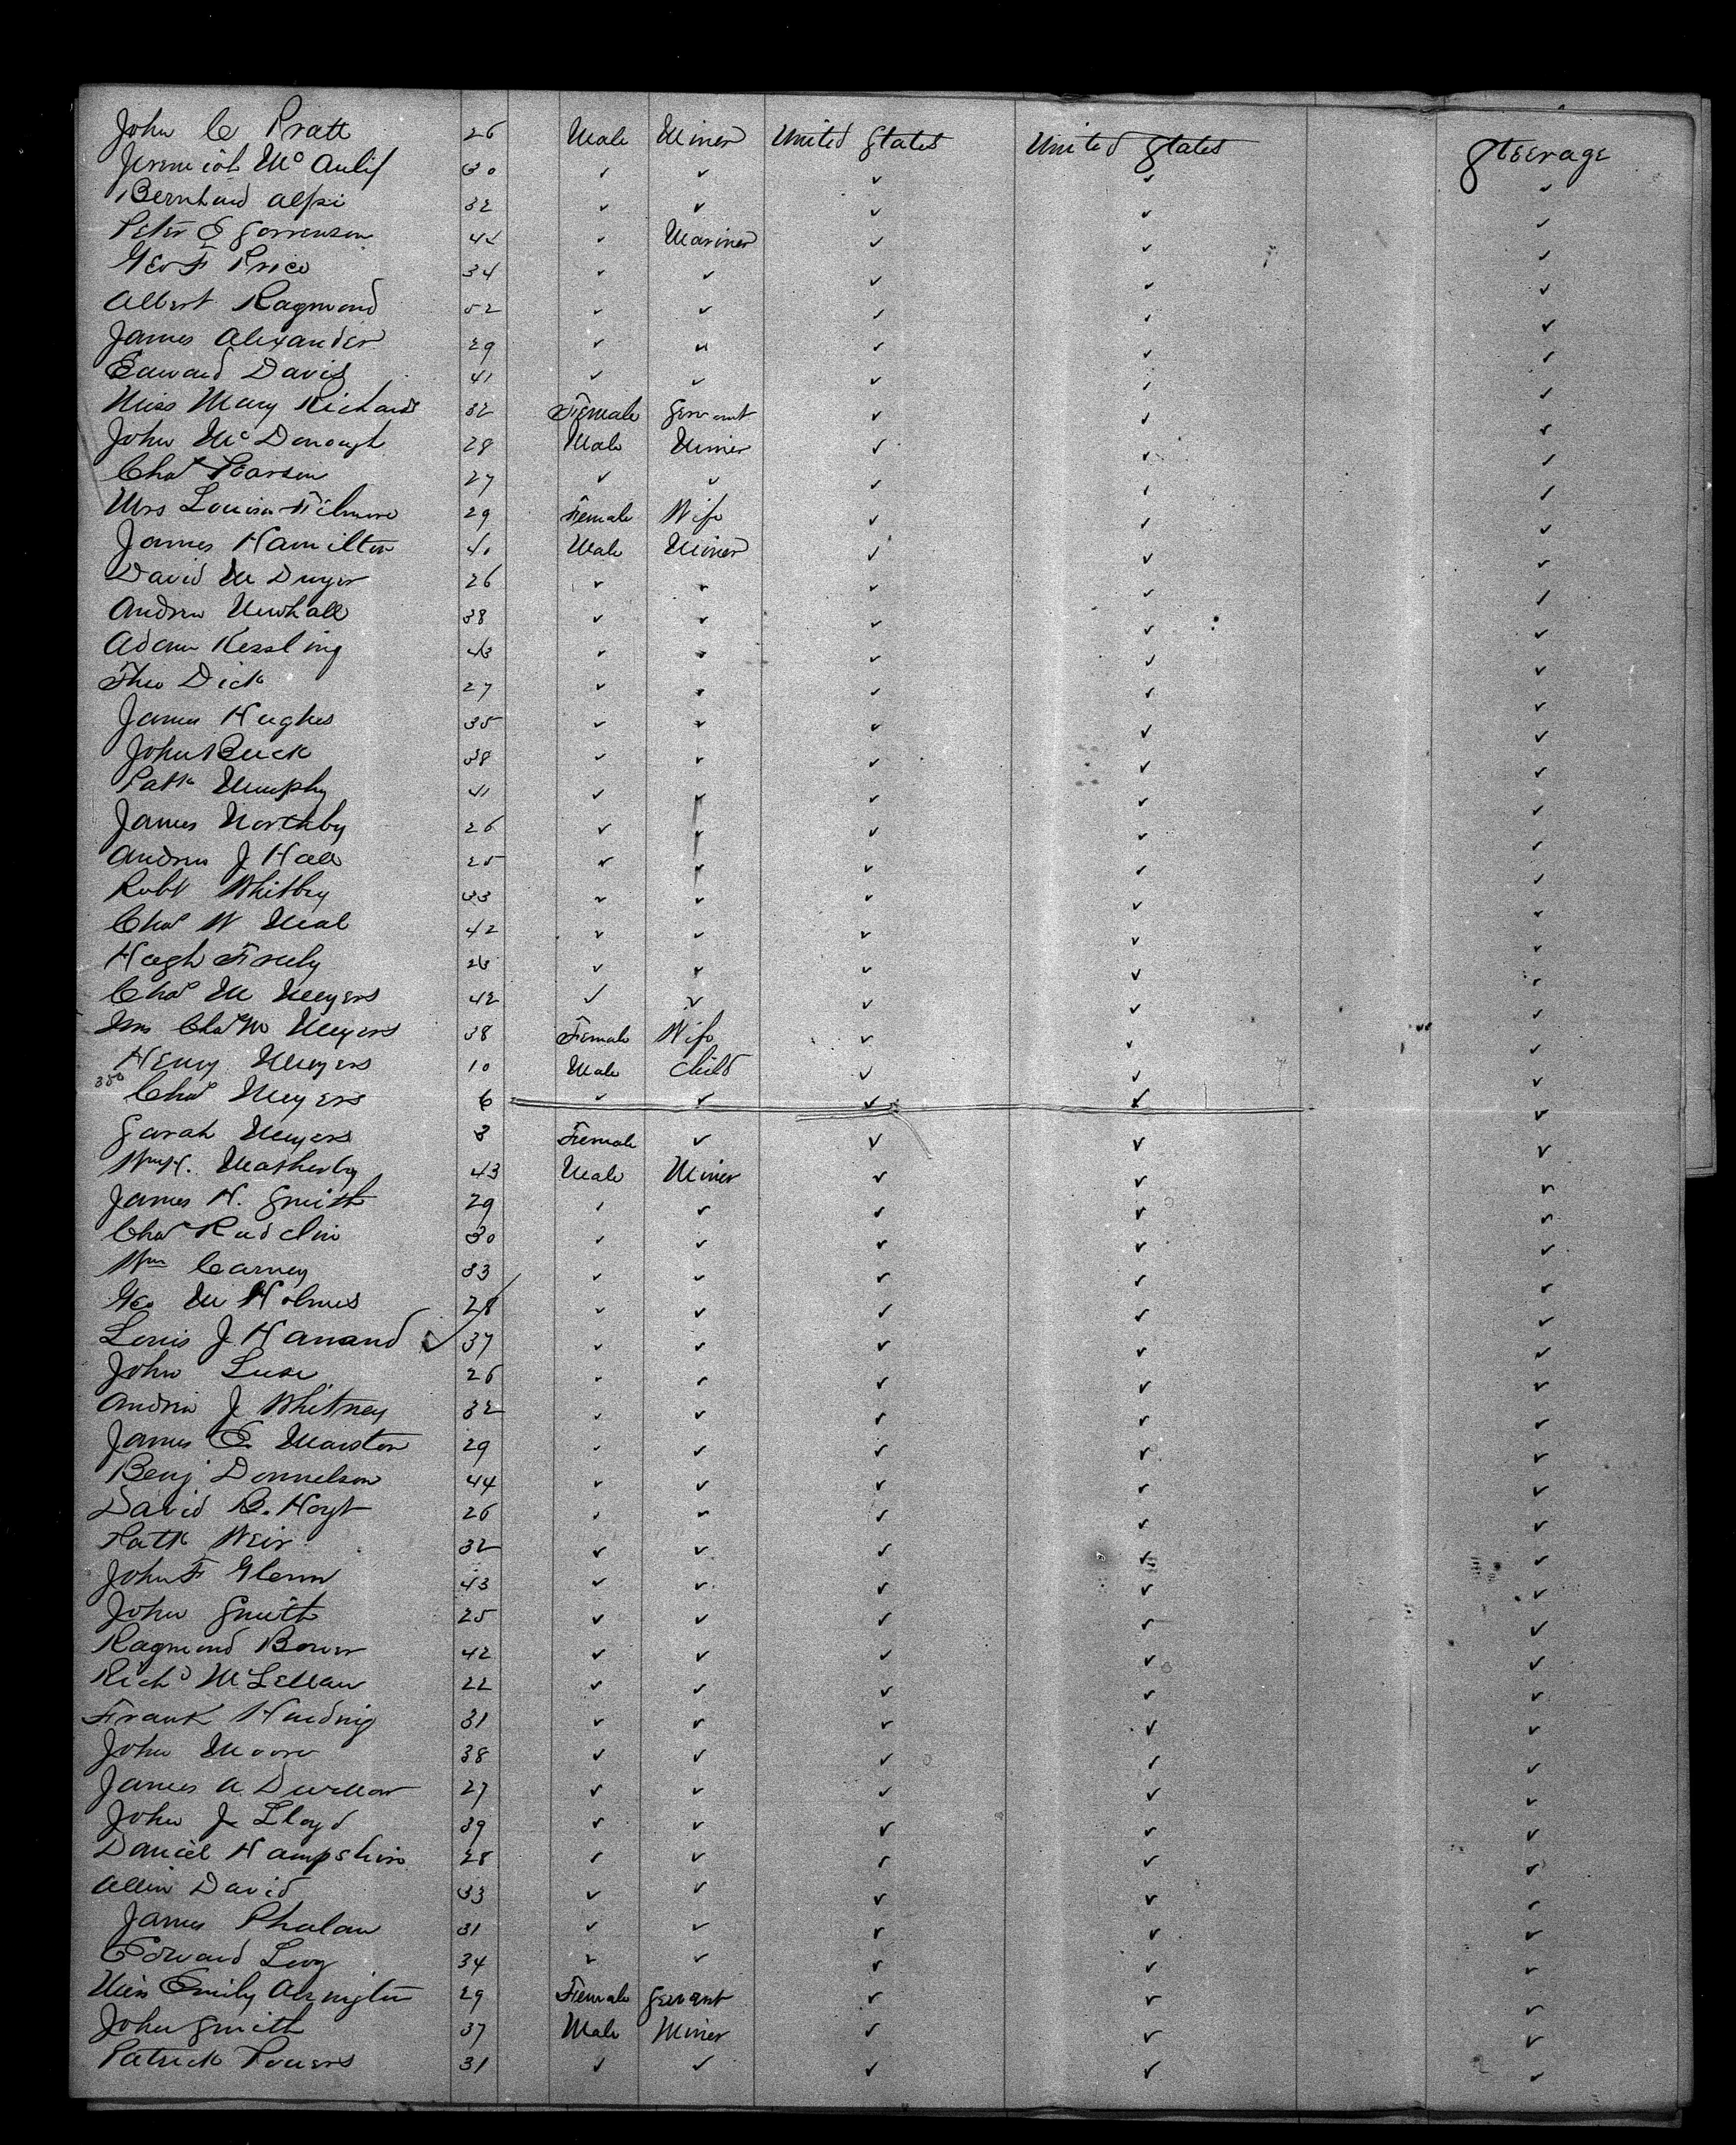 John C Pratt 26 Male Miner United States United States Steerage
Jeremiah McAulif 30 ✓ ✓ ✓ ✓ ✓
Bernhard Alpi 32 ✓ ✓ ✓ ✓ ✓
Peter E Sorrenson ✓ Mariner ✓ ✓ ✓
Geo F Price 34 ✓ ✓ ✓ ✓ ✓
Albert Raymond 52 ✓ ✓ ✓ ✓ ✓
James Alexander 29 ✓ " ✓ ✓ ✓
Edward Davis 41 ✓ ✓ ✓ ✓ ✓
Miss Mary Richards 32 Female Servant ✓ ✓ ✓
John McDonough 28 Male Miner ✓ ✓ ✓
Chas Pearson 27 ✓ ✓ ✓ ✓ ✓
Mrs Louisa Filmore 29 Female Wife ✓ ✓ ✓
James Hamilton 40 Male Miner ✓ ✓ ✓
David M Dwyer 26 ✓ ✓ ✓ ✓ ✓
Andrew Newhall 38 ✓ ✓ ✓ ✓ ✓
Adam Kessling 43 ✓ ✓ ✓ ✓ ✓
Theo Dick 27 ✓ ✓ ✓ ✓ ✓
James Hughes 35 ✓ ✓ ✓ ✓ ✓
John Buck 38 ✓ ✓ ✓ ✓ ✓
Patk Murphy 41 ✓ ✓ ✓ ✓ ✓
James Northby 26 ✓ ✓ ✓ ✓ ✓
Andrew J Hall 25 ✓ ✓ ✓ ✓ ✓
Robt Whitby 33 ✓ ✓ ✓ ✓ ✓
Chas W Neal 42 ✓ ✓ ✓ ✓ ✓
Hugh Freely 26 ✓ ✓ ✓ ✓ ✓
Chas M Meyers 42 ✓ ✓ ✓ ✓ ✓
Mrs Chas M Meyers 38 Female Wife ✓ ✓ ✓
Henry Meyers 10 Male Child ✓ ✓ ✓
350 Chas Meyers 6 ✓ ✓ ✓ ✓ ✓
Sarah Meyers 3 Female ✓ ✓ ✓ ✓
Wm H. Matherby 43 Male Miner ✓ ✓ ✓
James H. Smith 29 ✓ ✓ ✓ ✓ ✓
Chas Radclin 30 ✓ ✓ ✓ ✓ ✓
Wm Carney 33 ✓ ✓ ✓ ✓ ✓
Geo M Holmes 28 ✓ ✓ ✓ ✓ ✓
Louis J Hanand ✓ 37 ✓ ✓ ✓ ✓ ✓
John Luse 26 ✓ ✓ ✓ ✓ ✓
Andrew J Whitney 32 ✓ ✓ ✓ ✓ ✓
James E. Marston 29 ✓ ✓ ✓ ✓ ✓
Benj Donnelson 44 ✓ ✓ ✓ ✓ ✓
David B. Hoyt 26 ✓ ✓ ✓ ✓ ✓
Patk Weir 32 ✓ ✓ ✓ ✓ ✓
John F Glenn 43 ✓ ✓ ✓ ✓ ✓
John Smith 25 ✓ ✓ ✓ ✓ ✓
Raymond Bower 42 ✓ ✓ ✓ ✓ ✓
Richd McLellan 22 ✓ ✓ ✓ ✓ ✓
Frank Harding 31 ✓ ✓ ✓ ✓ ✓
John Moore 38 ✓ ✓ ✓ ✓ ✓
James A 27 ✓ ✓ ✓ ✓ ✓
John J. Lloyd 39 ✓ ✓ ✓ ✓ ✓
Daniel Hampshire 28 ✓ ✓ ✓ ✓ ✓
Allen David 33 ✓ ✓ ✓ ✓ ✓
James Phalan 31 ✓ ✓ ✓ ✓ ✓
Edward Levy 34 ✓ ✓ ✓ ✓ ✓
Miss Emily Arington 29 Female Servant ✓ ✓ ✓
John Smith 37 Male Miner ✓ ✓ ✓
Patrick Powers 31 ✓ ✓ ✓ ✓ ✓